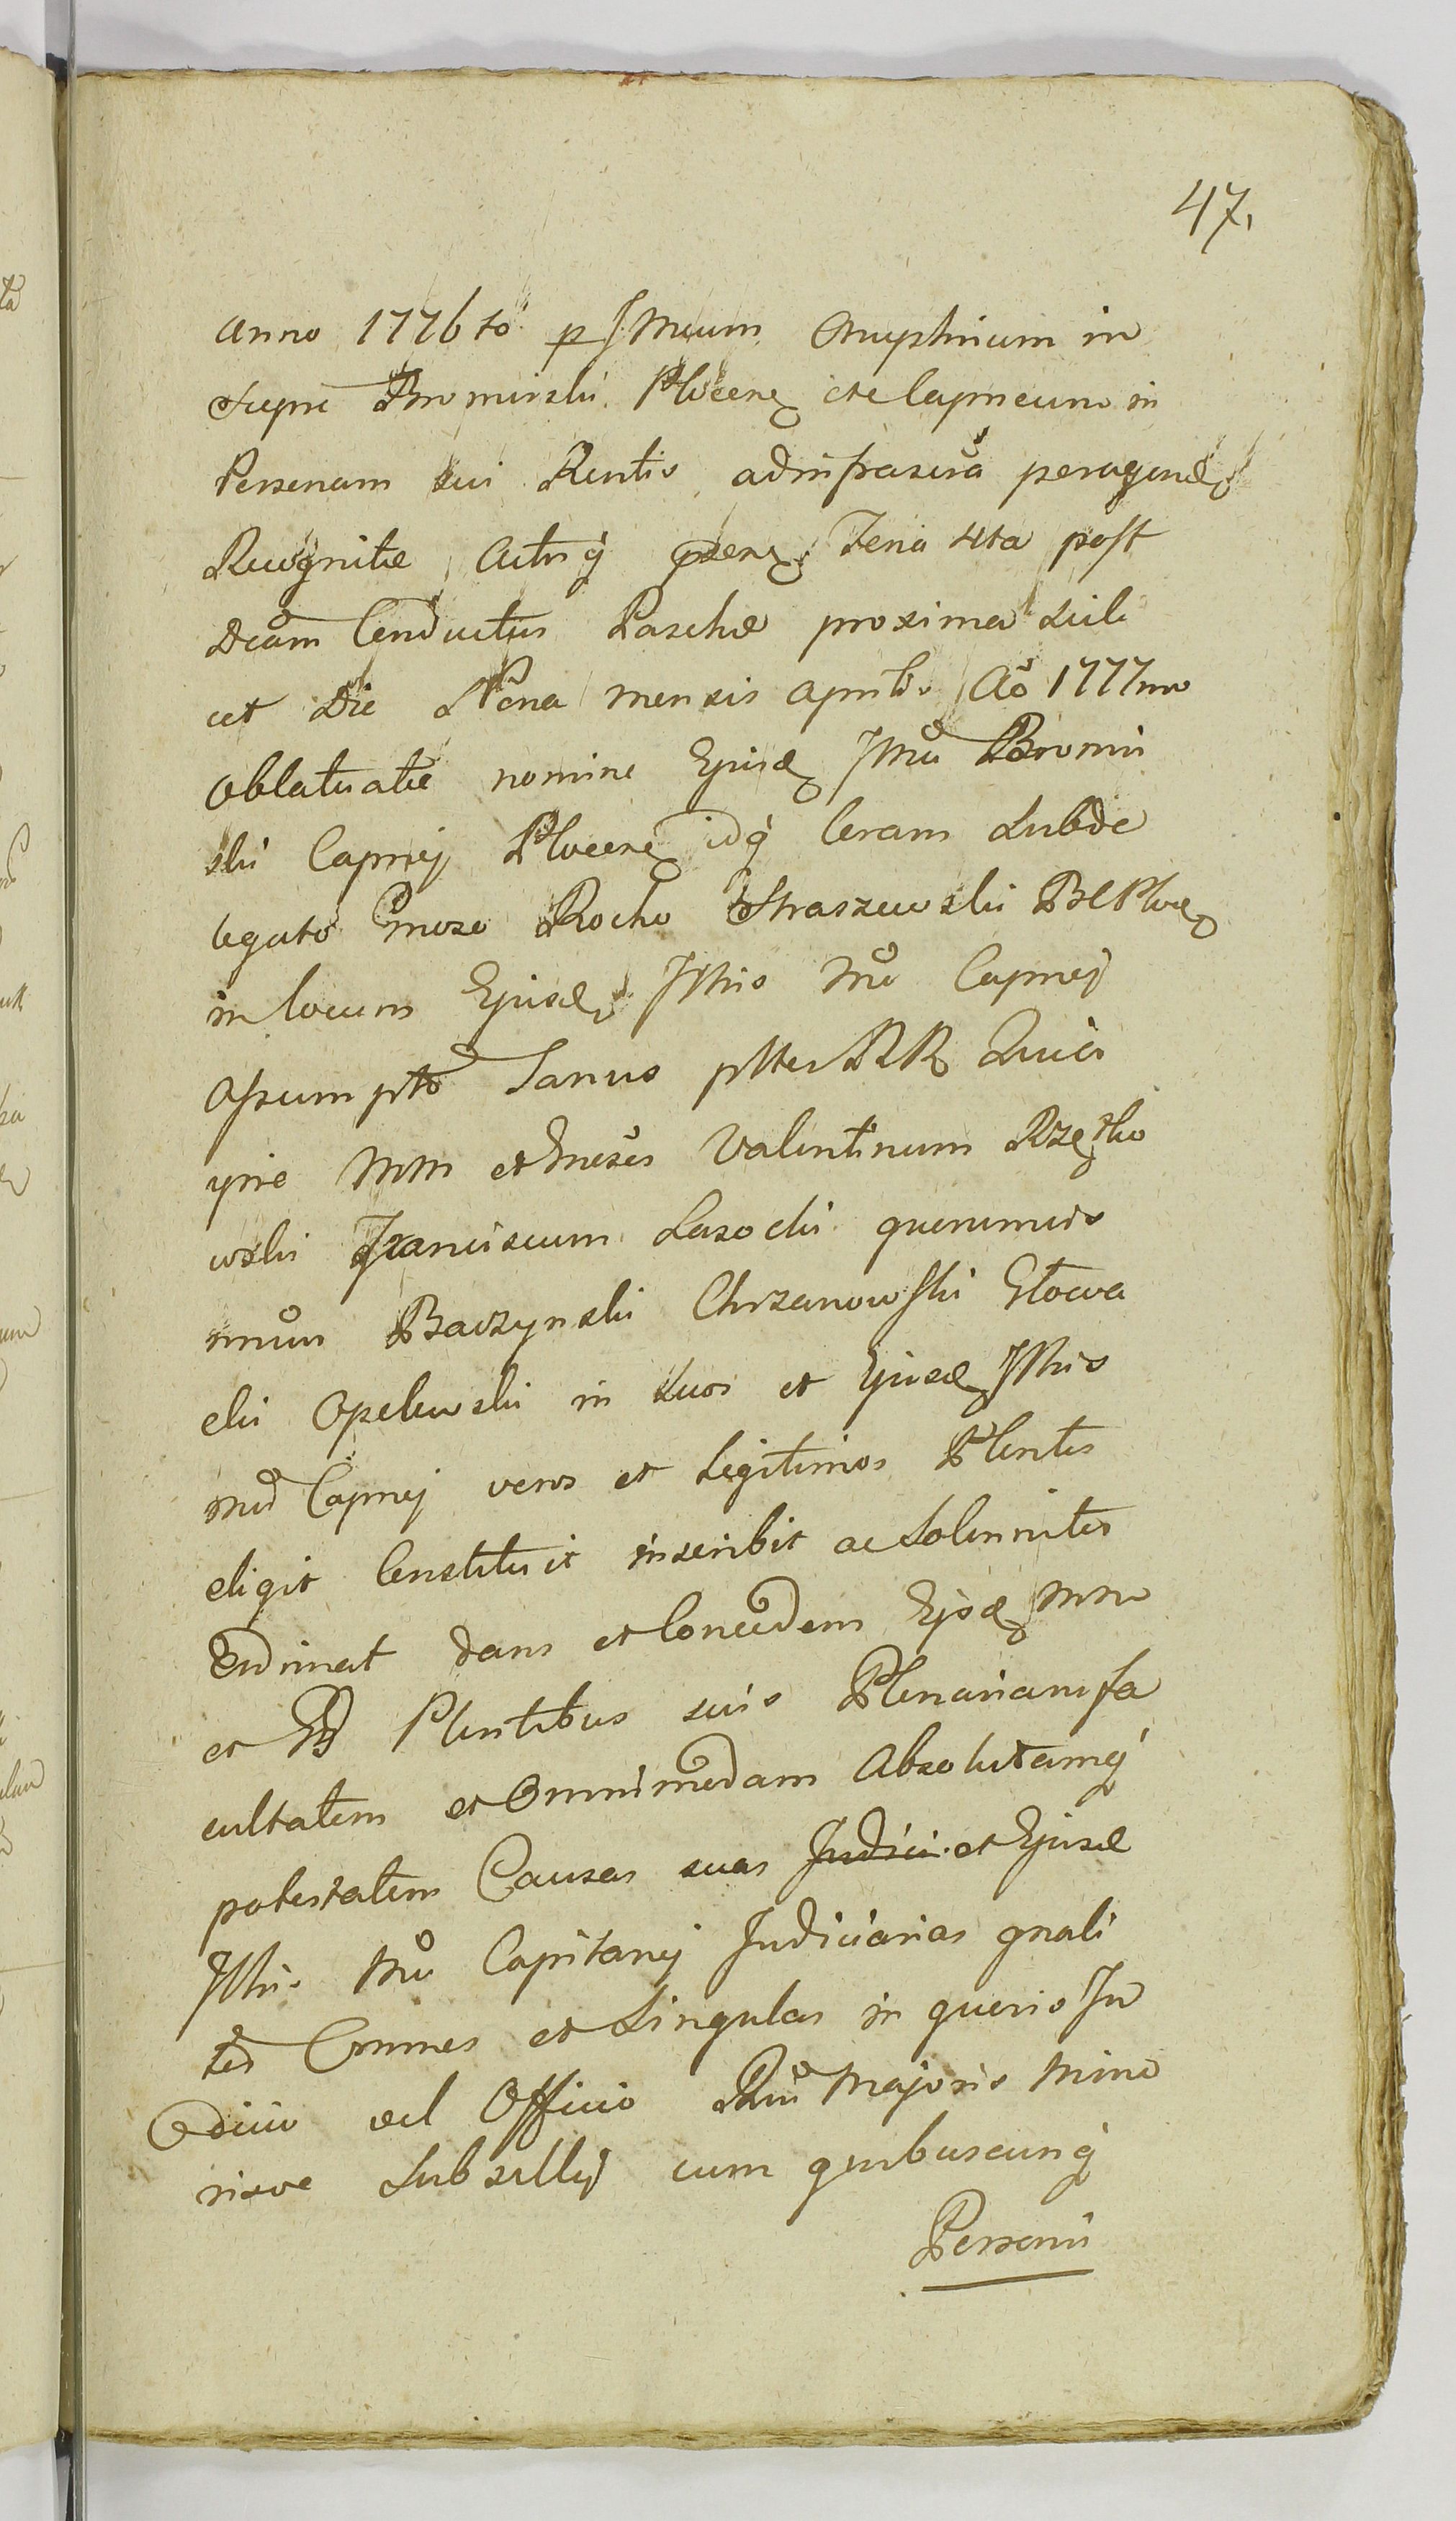 47.
Anno 1776to p JMcum Onuphrium in
Supri Bromirski Plocen cte Capneum in
Personam sui Rentis adinfrascra peragend
Recognitae Actisq psen Feria 4ta post
Dcam Conductus Paschae proxima Scili
cet Die Nona mensis Aprilis Ao 1777mo
Oblatuatae nomine Ejusd JMci Bromir
ski Capnej Plocen idq Coram Subde
legato Gnoso Rocho Straszewski BCPloc
in locum Ejusd JMis Mci Capnej
Assumpto Sanus RR Suis
ypre MM et Gnosos Valentinum Rzeszko
wski Franciscum Lasocki quenimvis
mnum Baczynski Chrzanowski Glowa
cki Opelewski in Suos et Ejusd JMis
Mci Capnej veros et Legitimos Plentes
eligit Constituit inscribit ac Solenniter
Ordinat dans et Concedens Ejsd MM
et GG Plentibus suis Plenariam fa
cultatem et Omnimodam Absolutamq
potestatem Causas suas Judici et Ejusd
JMis Mci Capitanej Judiciarias gnali
ter Omnes et Singulas in quovis Ju
dicio vel Officio Rni Majoris Mino
risve Subsellij cum quibuscunq
Personis